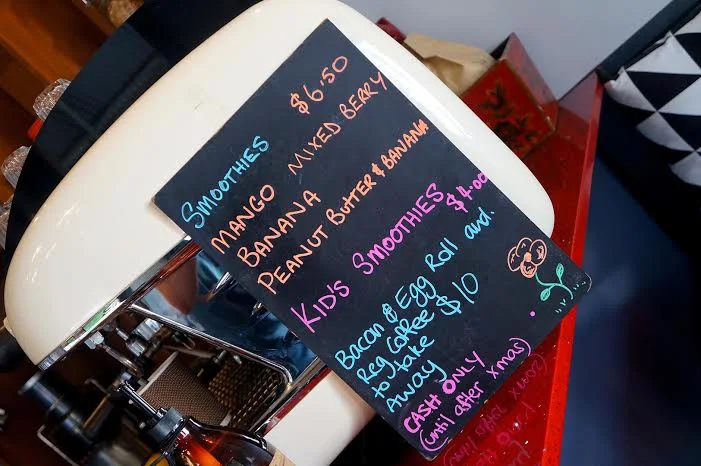 SMOOTHIES $6.50
MANGO MIXED BERRY
BANANA
PEANUT BUTTER & BANANA
KID'S SMOOTHIES $4.00
Bacon & Egg Roll and.
Reg Coffee $10
to take
AWAY
CASH ONLY
(until after xmas)